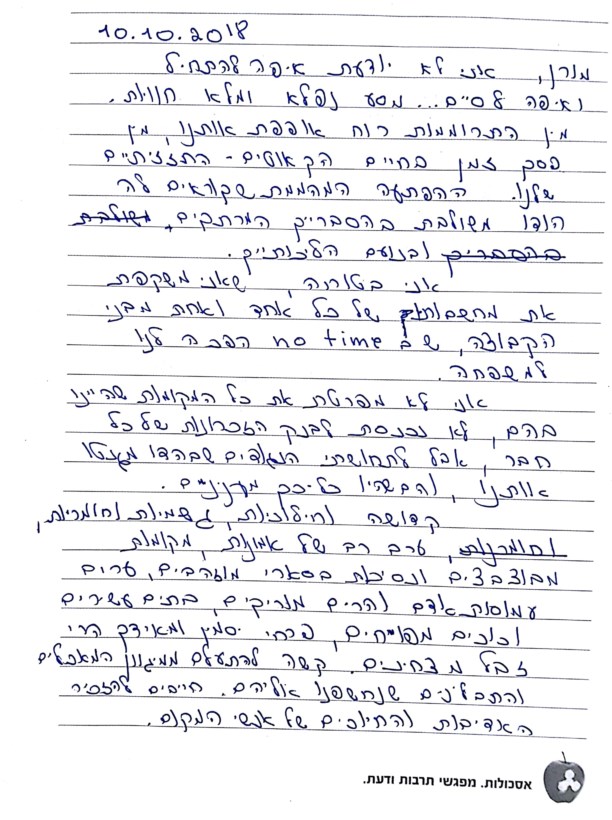 10.10.2018
מורן, אני לא יודעת איפה להתחיל
ואיפה לסיים... מסע נפלא ומלא חוויות.
מין התרוממות רוח אופפת אותנו, מין
פסק זמן בחיים הקאוטים-התזזיתיים
שלנו. ההפתעה המהממת שקוראים לה
הודו משולבת בהסברייך המרתקים, משולבת
בהסברייך ובנועם הליכותייך.
אני בטוחה, שאני משקפת
את מחשבותיהם של כל אחד ואחת מבני
הקבוצה, שב no time הפכה לנו
למשפחה.
אני לא מפרטת את כל המקומות שהיינו
בהם, לא נכנסת לבנק הזכרונות של כל
חבר, אבל לתחושתי הניגודים שבהודו מגנטו
אותנו, והם שהיו כל כך מעניינים.
קדושה וחילוניות, גשמיות וחומריות,
וחומרנות, ערב רב של אמונות, מקומות
מבוצבצים ונסיכות בסארי מוזהבים, ערים
עמוסות אדם והרים מוריקים, בתים עשירים
וכוכים מפויחים, פרחי יסמין ומאידך הרי
זבל מצחינים. קשה להתעלם ממיגוון המאכלים
והתבלינים שנחשפנו אליהם. חייבים להזכיר
האדיבות והחיוכים של אנשי המקום.
אסכולות. מפגשי תרבות ודעת.